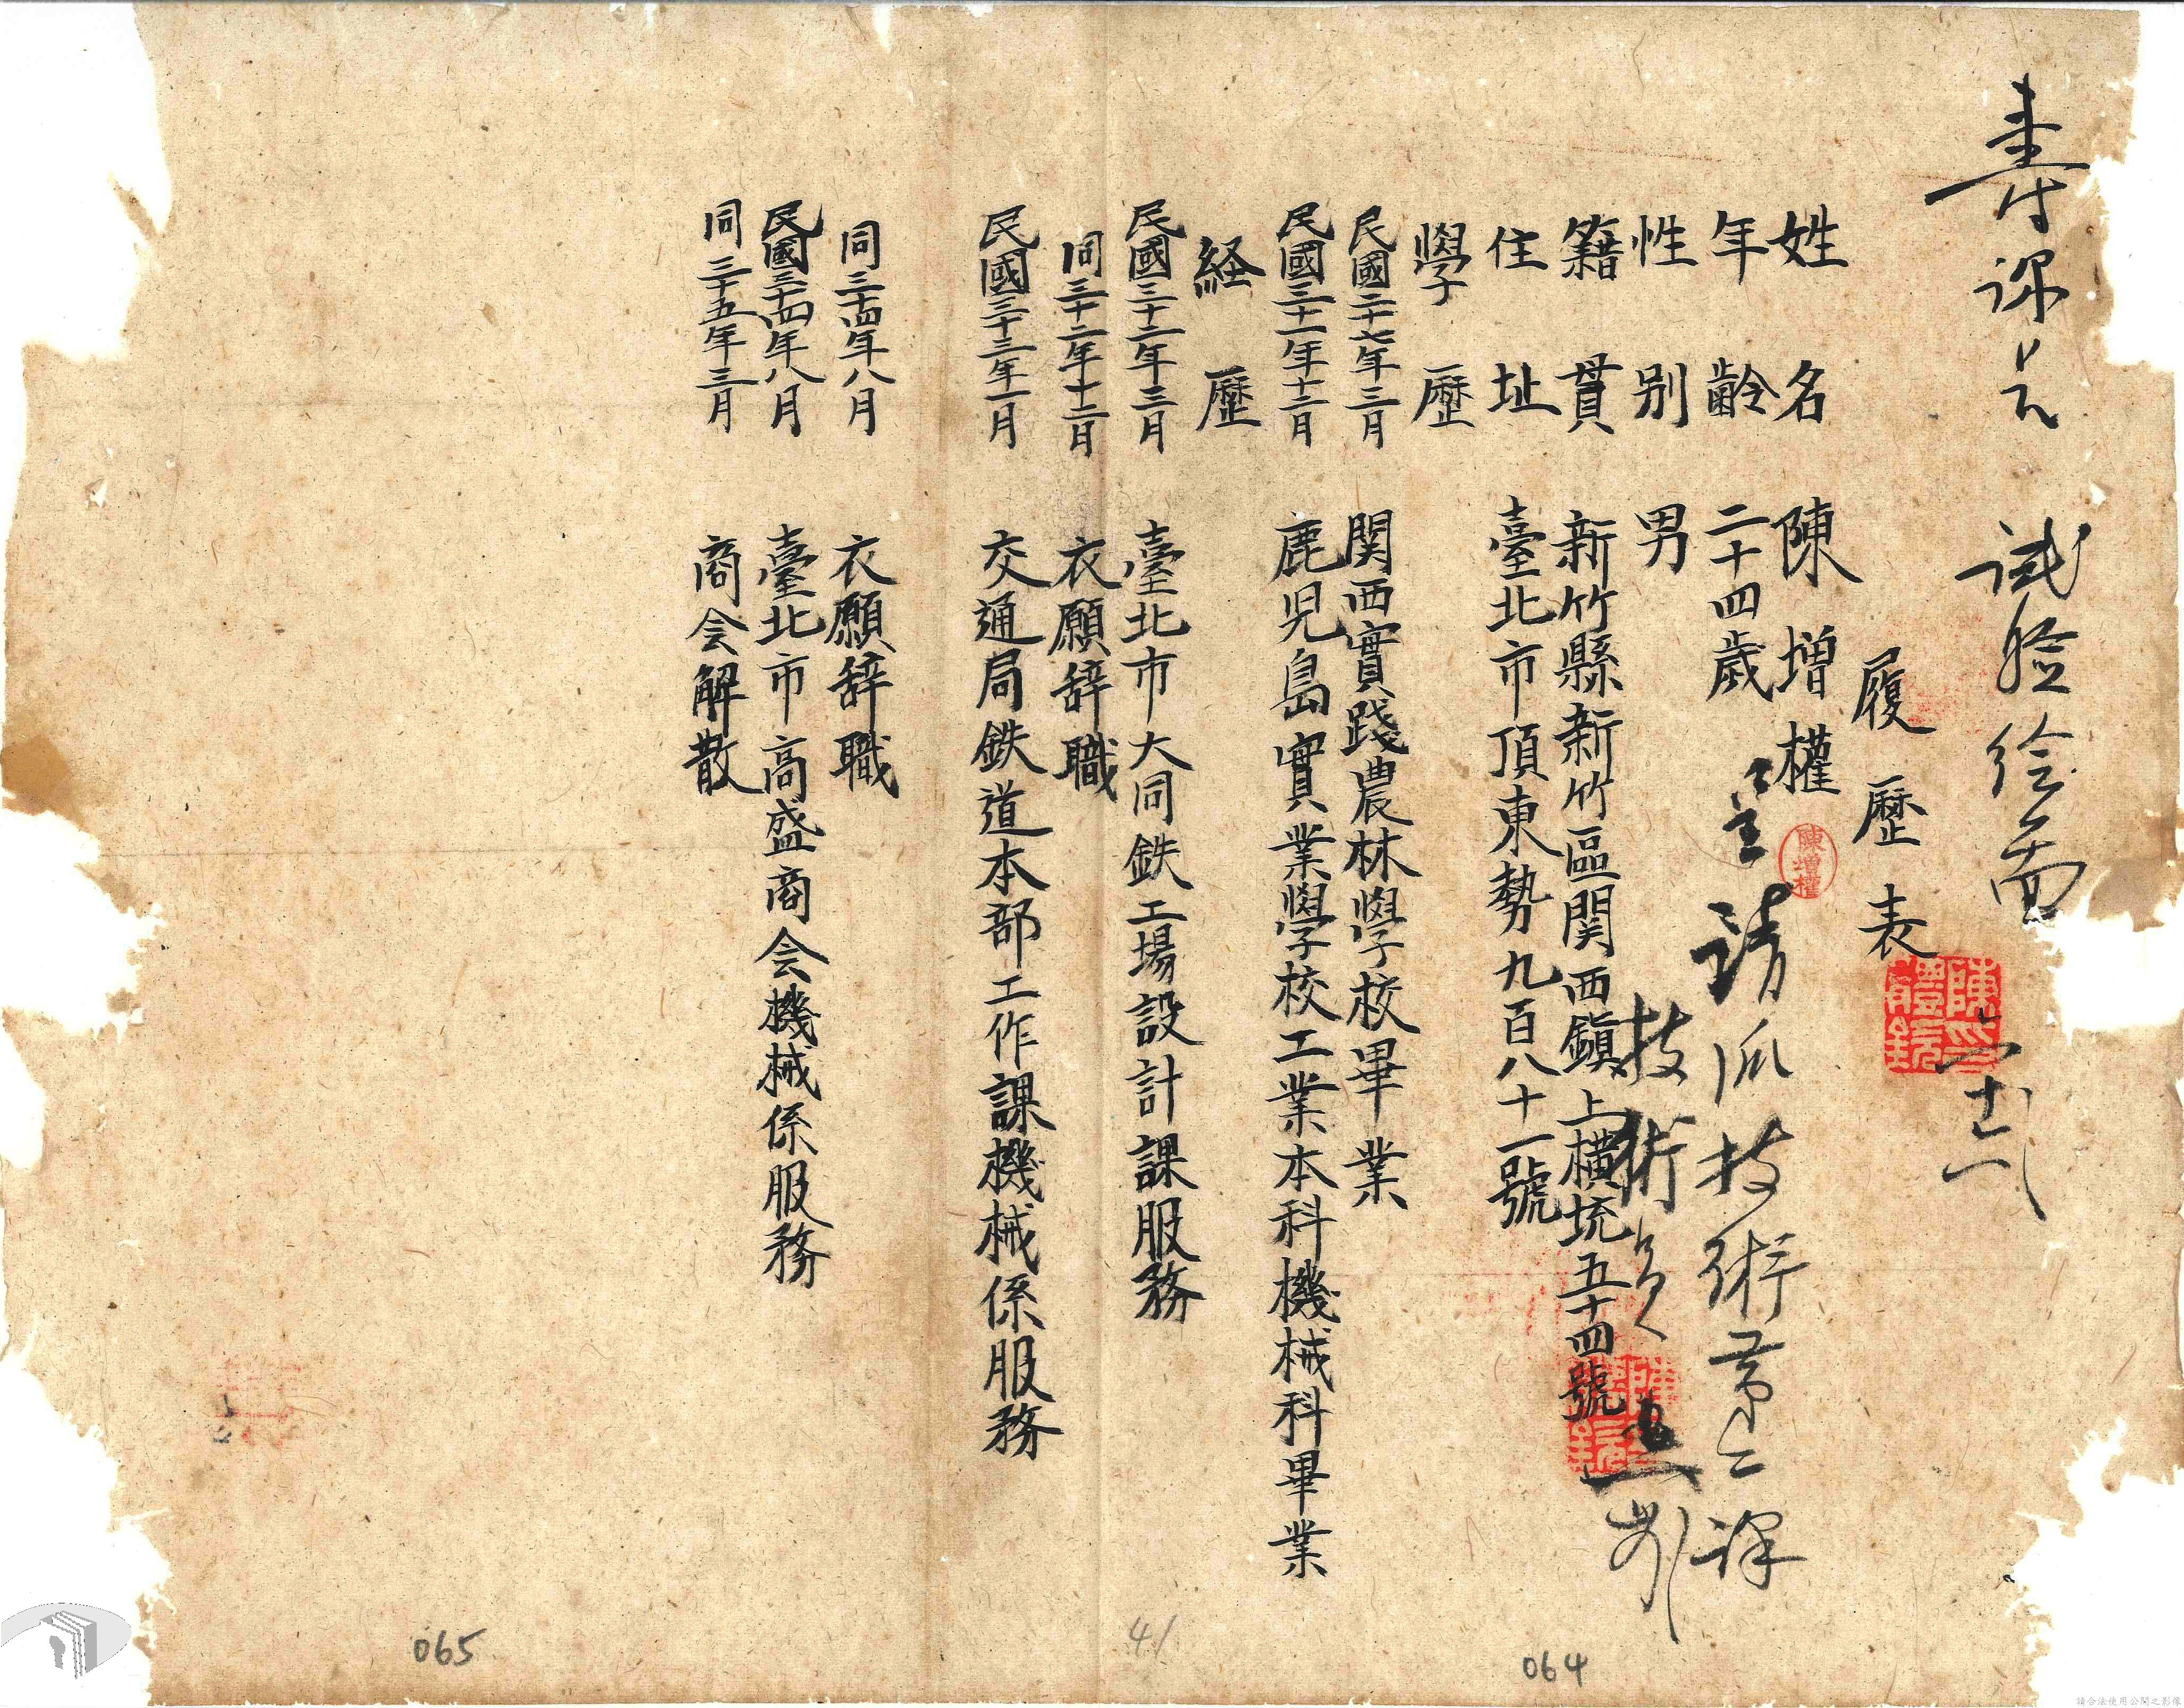 試繪畫
履歷表
姓名 陳增權
陳增權
年齡 二十四歲
性別 男
籍貫 新竹縣新竹區関西鎮上横坑五十四號
住址 臺北市頂東勢九百八十一號
技術
技術
學歷
民國二十七年三月 関西實踐農林學校畢業
民國三十一年十二月 鹿児島實業學校工業本科機械科畢業
経歷
民國三十二年三月 臺北市大同鉄工場設計課服務
同三十二年十二月 衣願辞職
民國三十三年一月 交通局鉄道本部工作課機械係服務
同三十四年八月 衣願辞職
民國三十四年八月 臺北市高盛商会機械係服務
同三十五年三月 商会解散
064
41
065